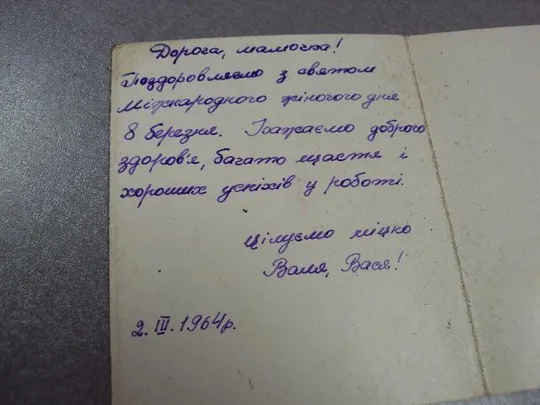 Дорога, мамочка!
Поздоровляємо з святом
Міжнародного жіночого дня
8 березня. Бажаємо доброго
здоров'я, багато щастя і
хороших успіхів у роботі.
Цілуємо міцно
Валя, Вася!
2. III. 1964р.